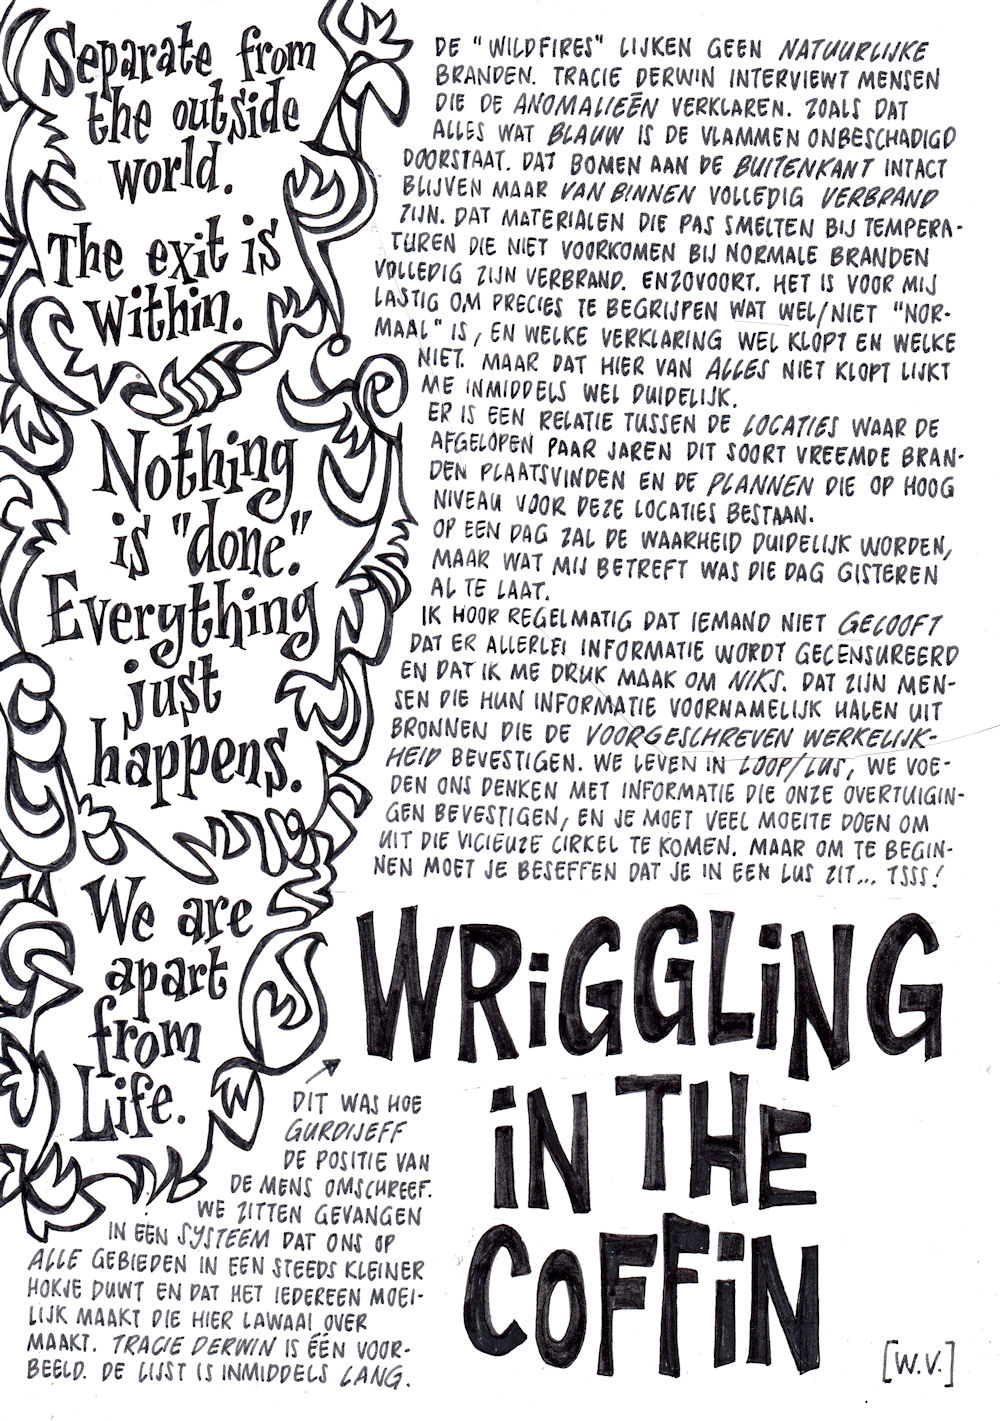 Separate from
the outside
world.
The exit is
within.
Nothing
is "done."
Everything
just
happens.
We are
apart
from
Life.
DE "WILDFIRES" LIJKEN GEEN NATUURLIJKE
BRANDEN. TRACIE DERWIN INTERVIEWT MENSEN
DIE DE ANOMALIEËN VERKLAREN. ZOALS DAT
ALLES WAT BLAUW IS DE VLAMMEN ONBESCHADIGD
DOORSTAAT. DAT BOMEN AAN DE BUITENKANT INTACT
BLIJVEN MAAR VAN BINNEN VOLLEDIG VERBRAND
ZIJN. DAT MATERIALEN DIE PAS SMELTEN BIJ TEMPERA-
TUREN DIE NIET VOORKOMEN BIJ NORMALE BRANDEN
VOLLEDIG ZIJN VERBRAND. ENZOVOORT. HET IS VOOR MIJ
LASTIG OM PRECIES TE BEGRIJPEN WAT WEL/NIET "NOR-
MAAL" IS, EN WELKE VERKLARING WEL KLOPT EN WELKE
NIET. MAAR DAT HIER VAN ALLES NIET KLOPT LIJKT
ME INMIDDELS WEL DUIDELIJK.
ER IS EEN RELATIE TUSSEN DE LOCATIES WAAR DE
AFGELOPEN PAAR JAREN DIT SOORT VREEMDE BRAN-
DEN PLAATSVINDEN EN DE PLANNEN DIE OP HOOG
NIVEAU VOOR DEZE LOCATIES BESTAAN.
OP EEN DAG ZAL DE WAARHEID DUIDELIJK WORDEN,
MAAR WAT MIJ BETREFT WAS DIE DAG GISTEREN
AL TE LAAT.
IK HOOR REGELMATIG DAT IEMAND NIET GELOOFT
DAT ER ALLERLEI INFORMATIE WORDT GECENSUREERD
EN DAT IK ME DRUK MAAK OM NIKS. DAT ZIJN MEN-
SEN DIE HUN INFORMATIE VOORNAMELIJK HALEN UIT
BRONNEN DIE DE VOORGESCHREVEN WERKELIJK-
HEID BEVESTIGEN. WE LEVEN IN LOOP/LUS, WE VOE-
DEN ONS DENKEN MET INFORMATIE DIE ONZE OVERTUIGIN-
GEN BEVESTIGEN, EN JE MOET VEEL MOEITE DOEN OM
UIT DIE VICIEUZE CIRKEL TE KOMEN. MAAR OM TE BEGIN-
NEN MOET JE BESEFFEN DAT JE IN EEN LUS ZIT... TSSS!
WRiGGLiNG
iN THE
COFFiN
DIT WAS HOE
GURDIJEFF
DE POSITIE VAN
DE MENS OMSCHREEF.
WE ZITTEN GEVANGEN
IN EEN SYSTEEM DAT ONS OP
ALLE GEBIEDEN IN EEN STEEDS KLEINER
HOKJE DUWT EN DAT HET IEDEREEN MOEI-
LIJK MAAKT DIE HIER LAWAAI OVER
MAAKT. TRACIE DERWIN IS ÉÉN VOOR-
BEELD. DE LIJST IS INMIDDELS LANG.
[W.V.]